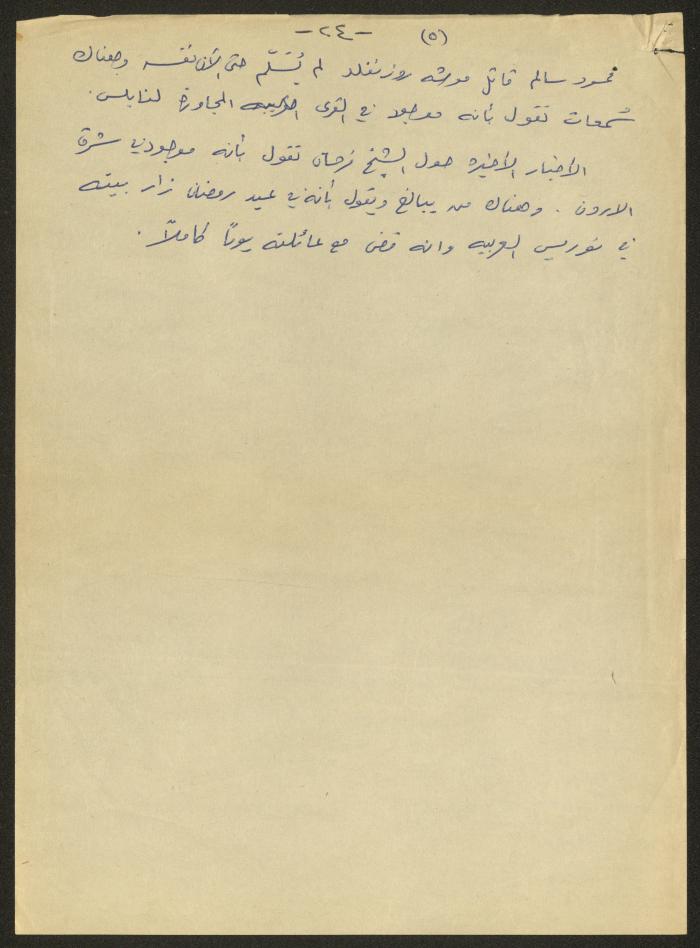 (٥) -٢٤-
محمود سالم قاتل موشه روزنفلد لم يُسَلّم حتى الآن نفسه وهناك
شمعات تقول بأنه موجود في القرى المجاورة لنابلس.
الاخبار الاخيره حول الشيخ فرحان تقول بأنه موجود في شرق
الاردن. وهناك من يبالغ ويقول بأنه في عيد رمضان زار بيته
في نوريس العربيه وانه قضى مع عائلته يومًا كاملاً.